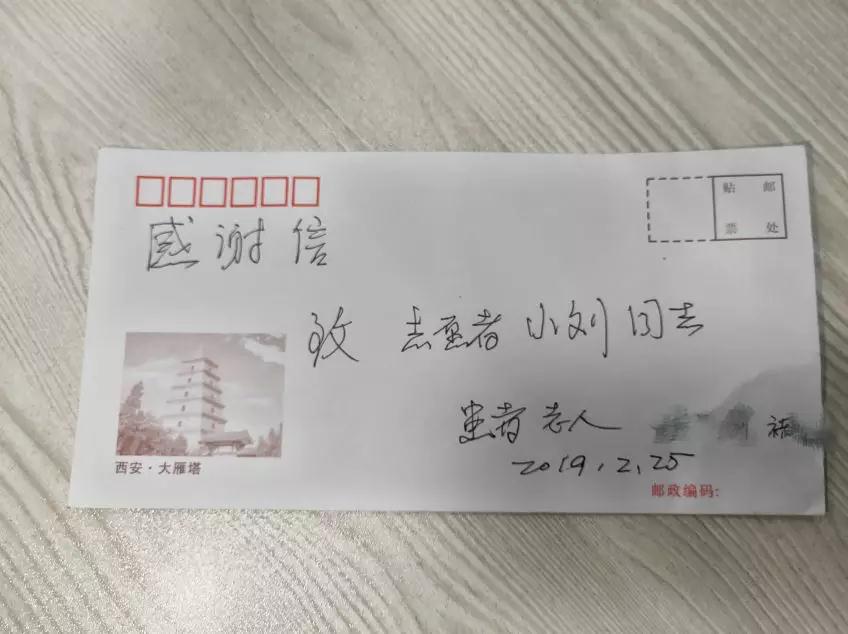 贴 邮
票 处
感谢信
致 志愿者 小刘 同志
患者 老人
2019.2.25
西安·大雁塔
邮政编码: